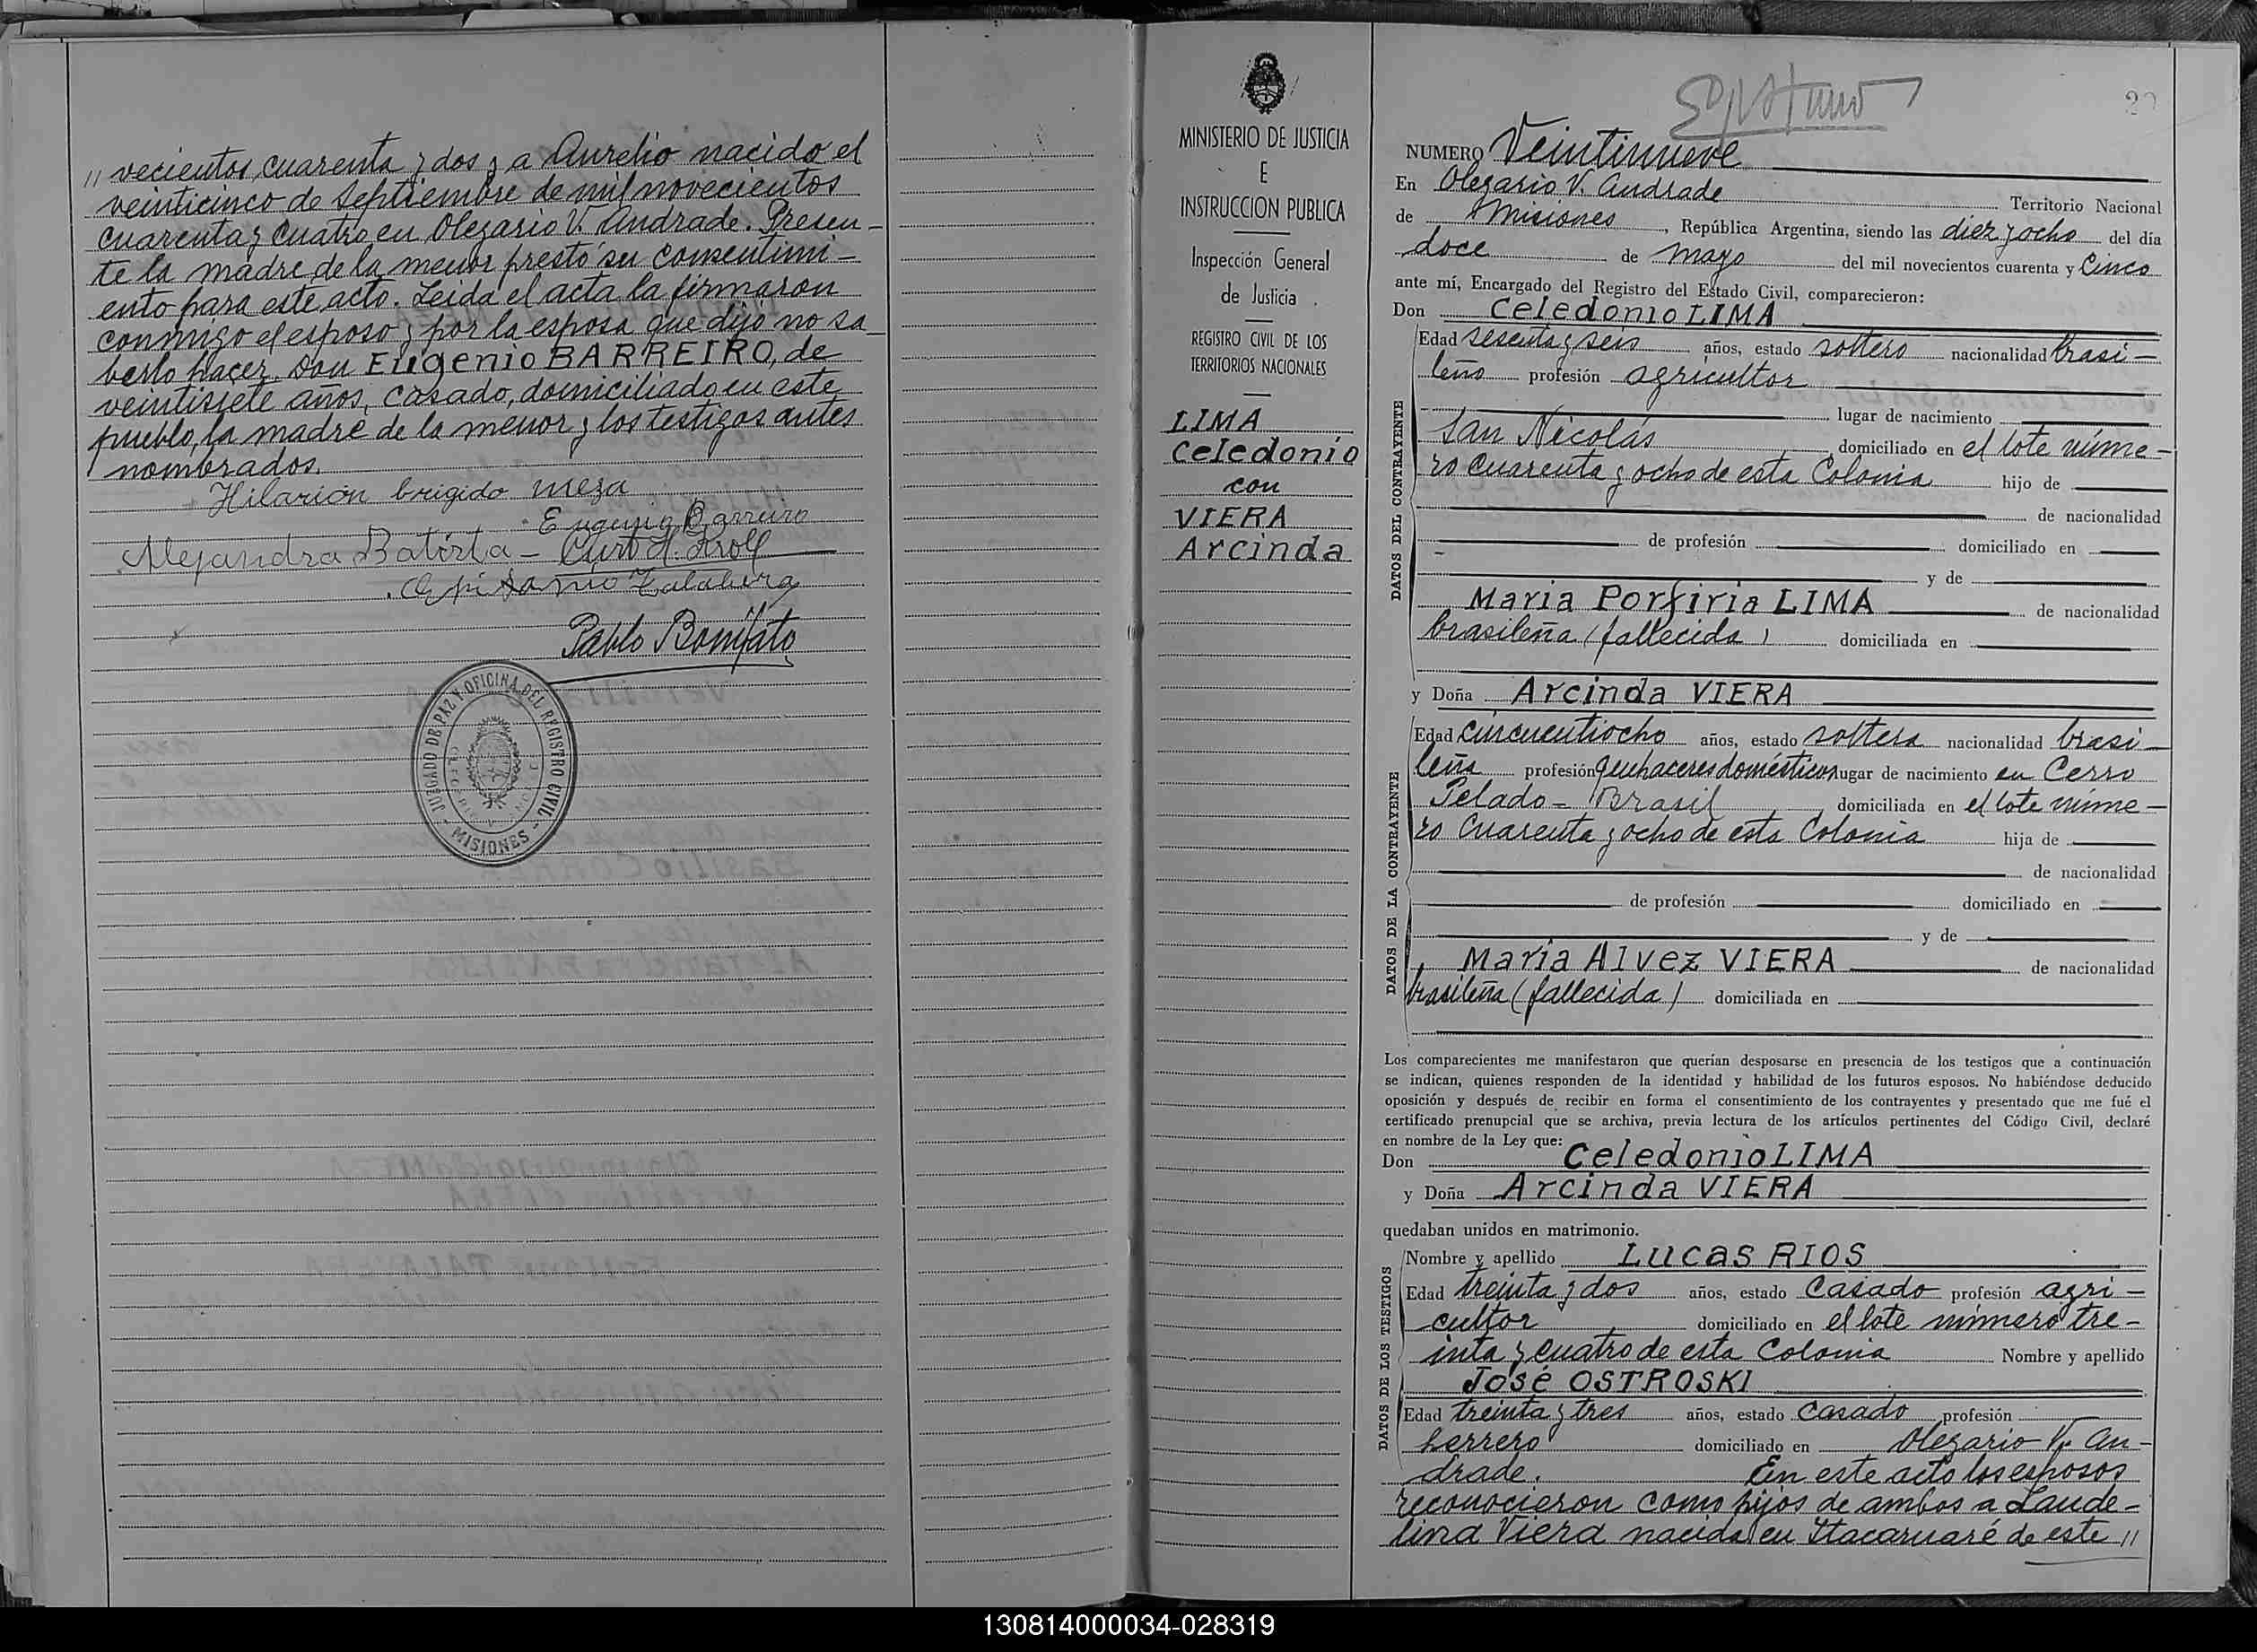 // vecientos cuarenta y dos y a Aurelio nacido el
veinticinco de Septiembre de mil novecientos
cuarenta y cuatro en Olegario V. Andrade. Presen-
te la madre de la menor prestó su consentimi-
ento para este acto. Leida el acta la firmaron
conmigo el esposo y por la esposa que dijo no sa-
berlo hacer, Don Eugenio BARREIRO, de
veintisiete años, casado, domiciliado en este
pueblo, la madre de la menor y los testigos antes
nombrados.
Hilarión brigido meza
Eugenio Barreiro
Alejandra Batista - Curt H. Kroll
Epifanio Talabera
Pablo Bonifato
JUZGADO DE PAZ Y OFICINA DEL REGISTRO CIVIL
- MISIONES -
MINISTERIO DE JUSTICIA
E
INSTRUCCION PUBLICA
Inspección General
de Justicia
REGISTRO CIVIL DE LOS
TERRITORIOS NACIONALES
LIMA
Celedonio
con
VIERA
Arcinda
NUMERO Veintinueve
En Olegario V. Andrade Territorio Nacional
de Misiones, República Argentina, siendo las diez y ocho del día
doce de mayo del mil novecientos cuarenta y Cinco
ante mí, Encargado del Registro del Estado Civil, comparecieron:
Don Celedonio LIMA
DATOS DEL CONTRAYENTE
Edad sesenta y seis años, estado soltero nacionalidad brasi-
leño profesión agricultor
lugar de nacimiento
San Nicolás domiciliado en el lote núme-
ro cuarenta y ocho de esta Colonia hijo de
de nacionalidad
de profesión domiciliado en
y de
Maria Porfiria LIMA de nacionalidad
brasileña (fallecida) domiciliada en
y Doña Arcinda VIERA
DATOS DE LA CONTRAYENTE
Edad cincuentiocho años, estado soltera nacionalidad brasi-
leña profesión quehaceres domésticos lugar de nacimiento en Cerro
Pelado - Brasil domiciliada en el lote núme-
ro Cuarenta y ocho de esta Colonia hija de
de nacionalidad
de profesión domiciliado en
y de
Maria Alvez VIERA de nacionalidad
brasileña (fallecida) domiciliada en
Los comparecientes me manifestaron que querían desposarse en presencia de los testigos que a continuación
se indican, quienes responden de la identidad y habilidad de los futuros esposos. No habiéndose deducido
oposición y después de recibir en forma el consentimiento de los contrayentes y presentado que me fué el
certificado prenupcial que se archiva, previa lectura de los artículos pertinentes del Código Civil, declaré
en nombre de la Ley que:
Don Celedonio LIMA
y Doña Arcinda VIERA
quedaban unidos en matrimonio.
DATOS DE LOS TESTIGOS
Nombre y apellido Lucas RIOS
Edad treinta y dos años, estado Casado profesión agri-
cultor domiciliado en el lote número tre-
inta y cuatro de esta Colonia Nombre y apellido
José OSTROSKI
Edad treinta y tres años, estado Casado profesión
herrero domiciliado en Olegario V. An-
drade. En este acto los esposos
reconocieron como hijos de ambos a Laude-
lina Viera nacida en Itacaruaré de este //
130814000034-028319